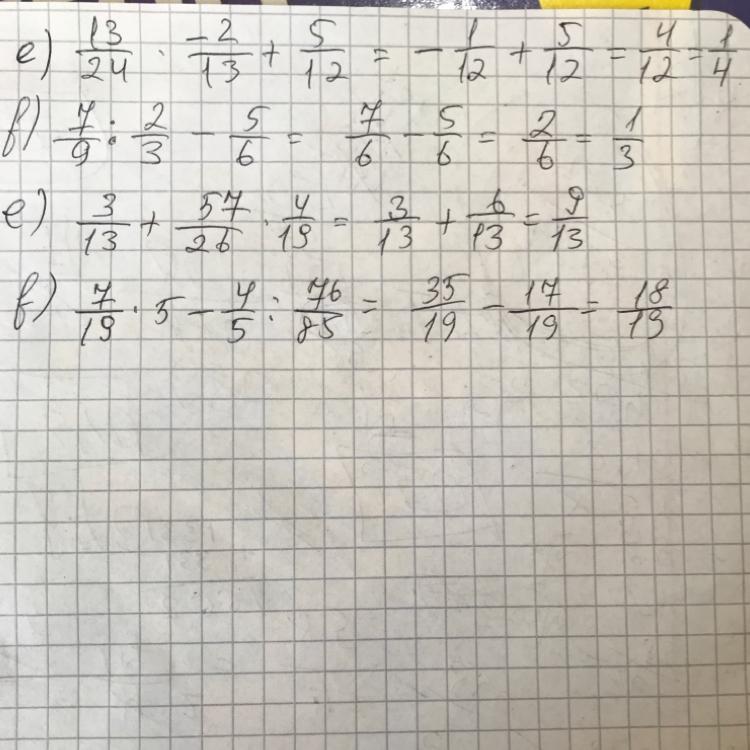 e) 13/24 · -2/13 + 5/12 = - 1/12 + 5/12 = 4/12 = 1/4
f) 7/9 : 2/3 - 5/6 = 7/6 - 5/6 = 2/6 = 1/3
e) 3/13 + 57/26 · 4/19 = 3/13 + 6/13 = 9/13
f) 7/19 · 5 - 4/5 : 76/85 = 35/19 - 17/19 = 18/19